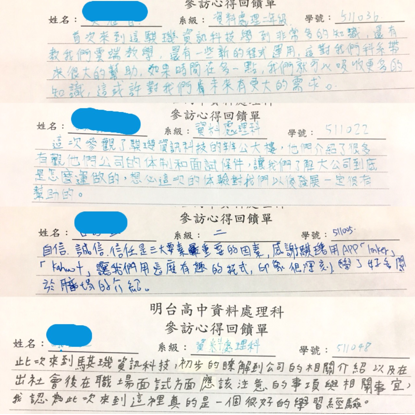 參訪心得回饋單
姓名： 系級： 資料處理 學號： 511036
首次來到這騏璣資訊科技學到非常多的知識，還有
教我們雲端教學，還有一些新的程式運用，這對我們科系帶
來很大的幫助，如果時間在多一點，我們就可以吸收更多的
知識，這或許對我們有未來有更大的需求。
姓名： 系級： 資料處理科 學號： 511022
這次參觀了騏璣資訊科技的辦公大樓，他們介紹了很多
有觀他們公司的体制和面試條件，讓我們了解大公司到底
是怎麼運做的，想必這次的体驗對我們以後發展一定很有
幫助的。
參訪心得回饋單
姓名： 系級： 二 學號： 51105
自信、誠信、信任是三大事業重要的因素，感謝騏璣用APP「
「Kahoot」，讓我們用這麼有趣的程式，印象很深刻，學了好多關
於職場的介紹。
明台高中資料處理科
參訪心得回饋單
姓名： 系級： 資料處理科 學號： 511048
此次來到騏璣資訊科技，初步的瞭解到公司的相關介紹以及在
出社會後在職場面試方面應該注意的事項與相關事宜，
我認為此次來到這裡真的是一個很好的學習經驗。